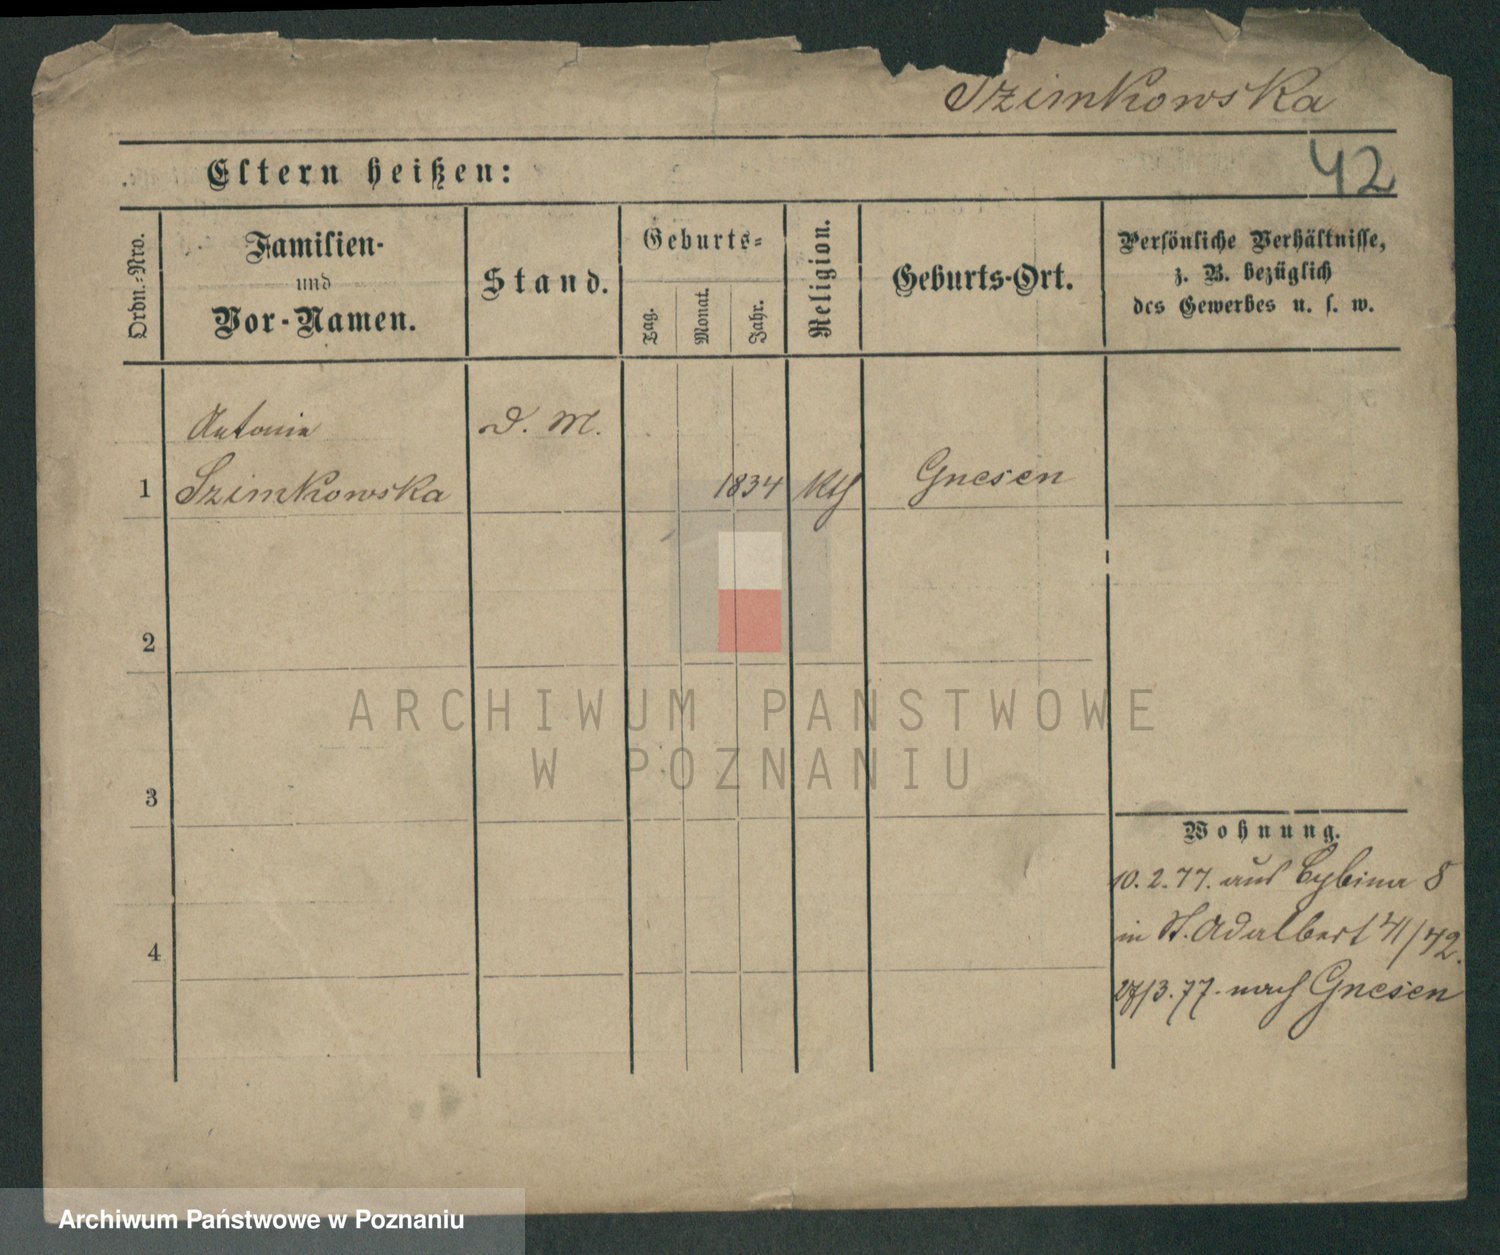 Szimkowska
Eltern heißen:
42
Ordn.-Nro.
Familien-
und
Vor-Namen.
Stand.
Geburts-
Tag.
Monat.
Jahr.
Religion.
Geburts-Ort.
Persönliche Verhältnisse,
z. B. bezüglich
des Gewerbes u. s. w.
Antonie
D. M.
1 Szimkowska 1834 kth Gnesen
2
3
4
Wohnung.
10.2.77. aus Cybina 8
in St. Adalbert 41/42.
27/3.77. nach Gnesen
ARCHIWUM PAŃSTWOWE
W POZNANIU
Archiwum Państwowe w Poznaniu